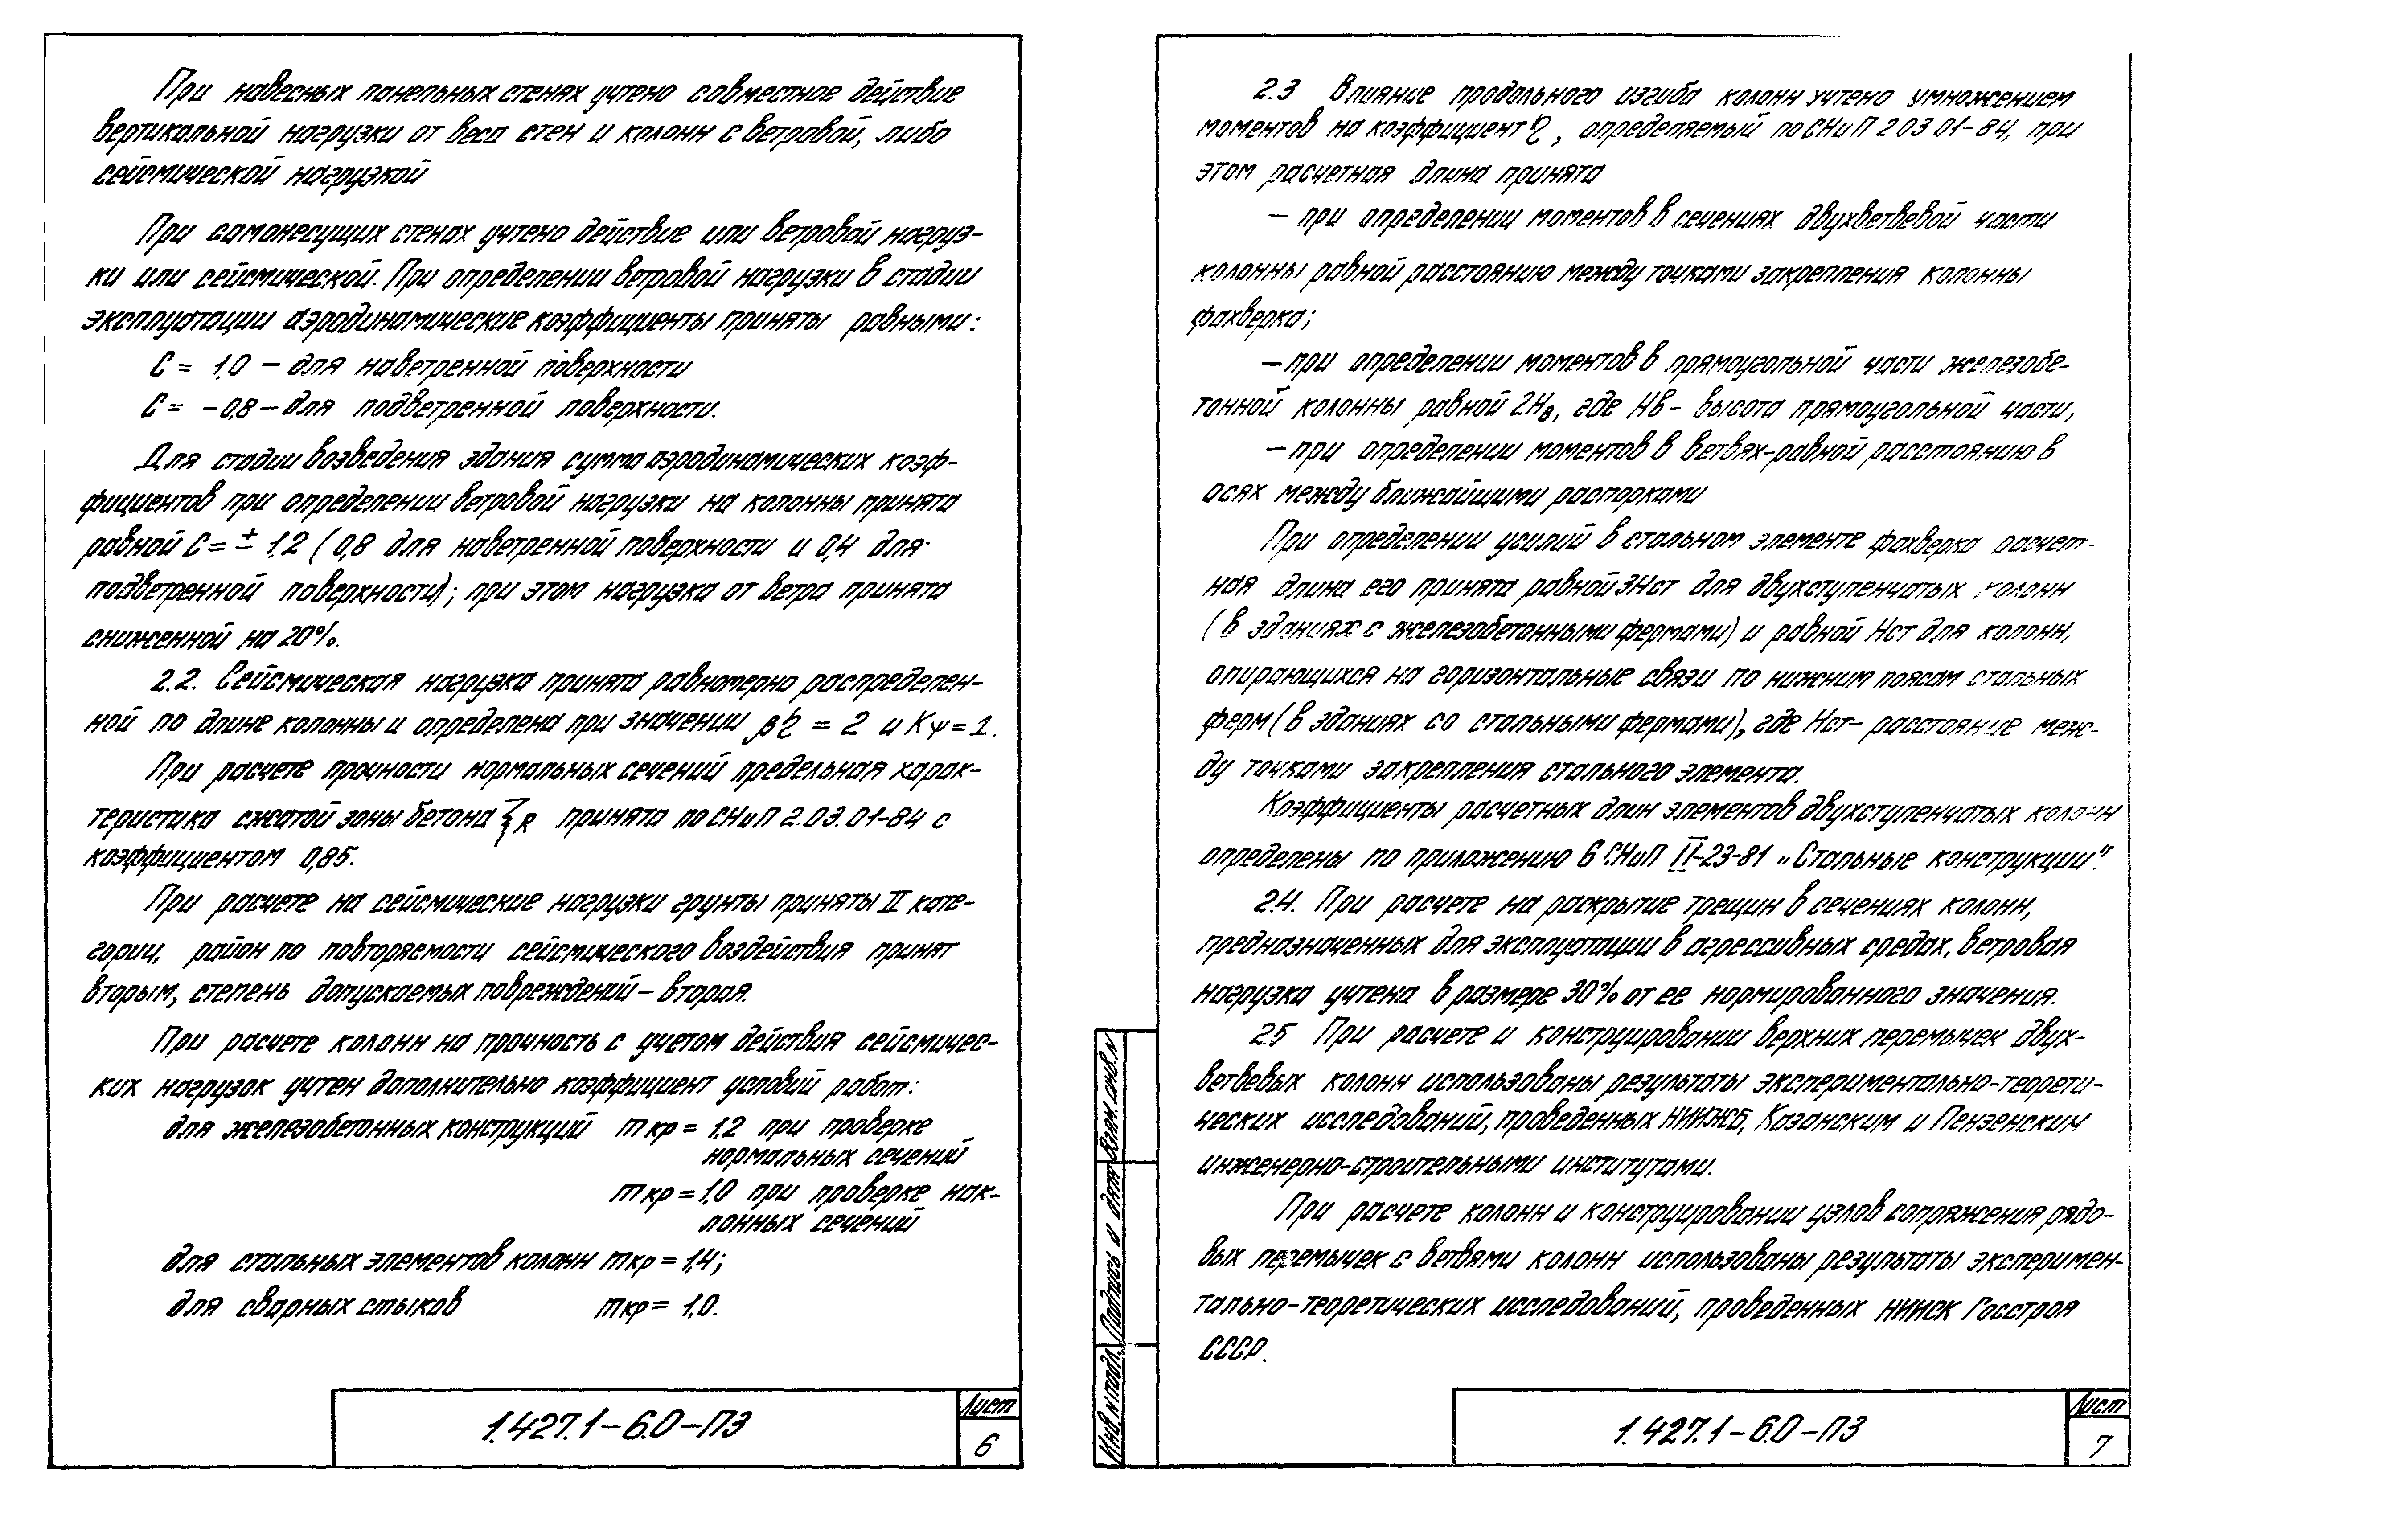 При навесных панельных стенах учтено совместное действие
вертикальной нагрузки от веса стен и колонн с ветровой, либо
сейсмической нагрузкой
При самонесущих стенах учтено действие или ветровой нагруз-
ки или сейсмической. При определении ветровой нагрузки в стадии
эксплуатации аэродинамические коэффициенты приняты равными:
С = 1,0 – для наветренной поверхности
С = – 0,8 – для подветренной поверхности.
Для стадии возведения здания сумма аэродинамических коэф-
фициентов при определении ветровой нагрузки на колонны принята
равной С = ± 1,2 ( 0,8 для наветренной поверхности и 0,4 для
подветренной поверхности); при этом нагрузка от ветра принята
сниженной на 20%.
2.2. Сейсмическая нагрузка принята равномерно распределен-
ной по длине колонны и определена при значении βη = 2 и Кψ = 1.
При расчете прочности нормальных сечений предельная харак-
теристика сжатой зоны бетона ξR принята по СНиП 2.03.01-84 с
коэффициентом 0,85.
При расчете на сейсмические нагрузки грунты приняты II кате-
гории, район по повторяемости сейсмического воздействия принят
вторым, степень допускаемых повреждений – вторая.
При расчете колонн на прочность с учетом действия сейсмичес-
ких нагрузок учтен дополнительно коэффициент условий работ:
для железобетонных конструкций mкр = 1,2 при проверке
нормальных сечений
mкр = 1,0 при проверке нак-
лонных сечений
для стальных элементов колонн mкр = 1,4;
для сварных стыков mкр = 1,0.
1.427.1-6.0-ПЗ
Лист
6
2.3 Влияние продольного изгиба колонн учтено умножением
моментов на коэффициент η, определяемый по СНиП 2 03 01-84, при
этом расчетная длина принята
– при определении моментов в сечениях двухветвевой части
колонны равной расстоянию между точками закрепления колонны
фахверка;
– при определении моментов в прямоугольной части железобе-
тонной колонны равной 2Нв, где Нв - высота прямоугольной части,
– при определении моментов в ветвях-равной расстоянию в
осях между ближайщими распорками
При определении усилий в стальном элементе фахверка расчет-
ная длина его принята равной 3Нст для двухступенчатых колонн
(в зданиях с железобетонными фермами) и равной Нст для колонн,
опирающихся на горизонтальные связи по нижним поясам стальных
ферм (в зданиях со стальными фермами), где Нст – расстояние меж-
ду точками закрепления стального элемента.
Коэффициенты расчетных длин элементов двухступенчатых колонн
определены по приложению 6 СНиП II-23-81 „Стальные конструкции".
2.4. При расчете на раскрытие трещин в сечениях колонн,
предназначенных для эксплуатации в агрессивных средах, ветровая
нагрузка учтена в размере 30% от ее нормированного значения.
2.5 При расчете и конструировании верхних перемычек двух-
ветвевых колонн использованы результаты экспериментально-теорети-
ческих исследований, проведенных НИИЖБ, Казанским и Пензенским
инженерно-строительными институтами.
При расчете колонн и конструировании узлов сопряжения рядо-
вых перемычек с ветвями колонн использованы результаты эксперимен-
тально-теоретических исследований, проведенных НИИСК Госстроя
СССР.
Взам. инв. N
Подпись и дата
Инв. N подл.
1.427.1-6.0-ПЗ
Лист
7